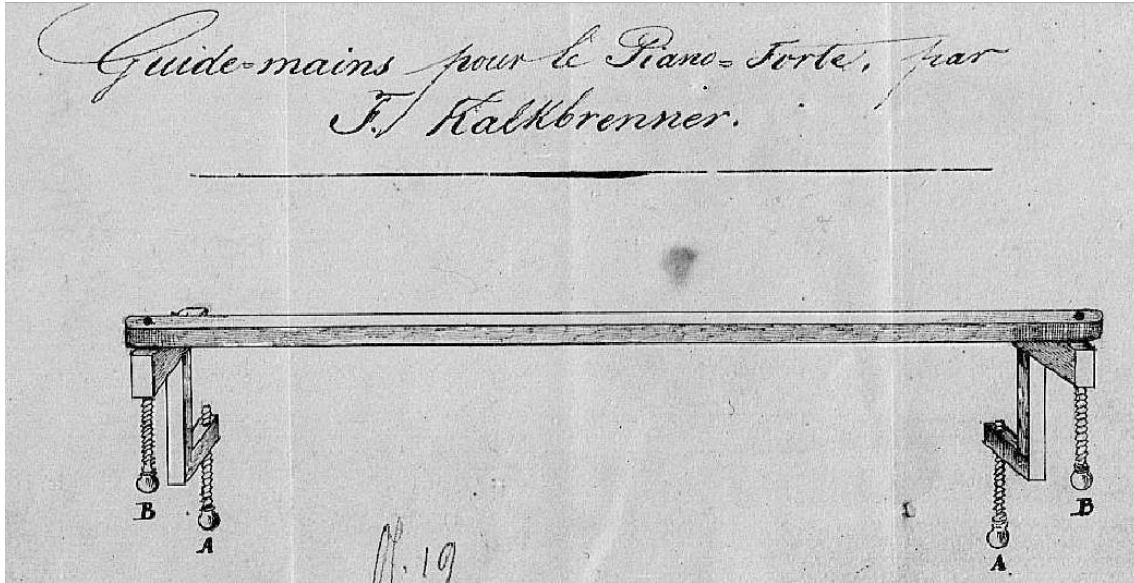 Guide=mains pour le Piano=Forte, par
F. Kalkbrenner.
B
A
B
A
N. 19